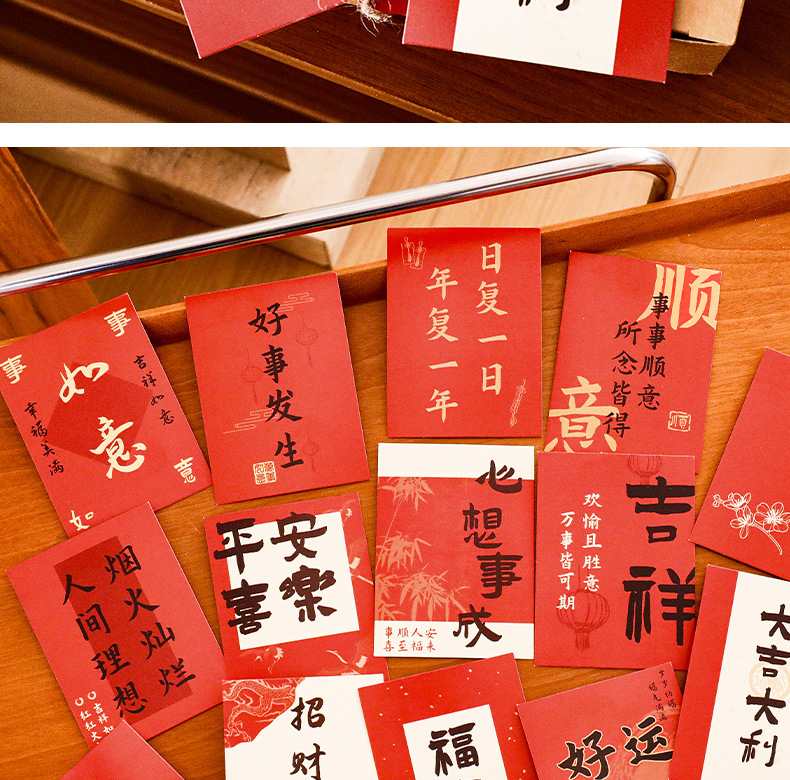 事
事
如
意
如意
吉祥如意
幸福美满
好事发生
日复一日
年复一年
顺
意
事事顺意
所念皆得
顺
烟火灿烂
人间理想
安樂
平喜
心想事成
安人顺事
来福至喜
吉祥
欢愉且胜意
万事皆可期
大吉大利
招财
福
好运